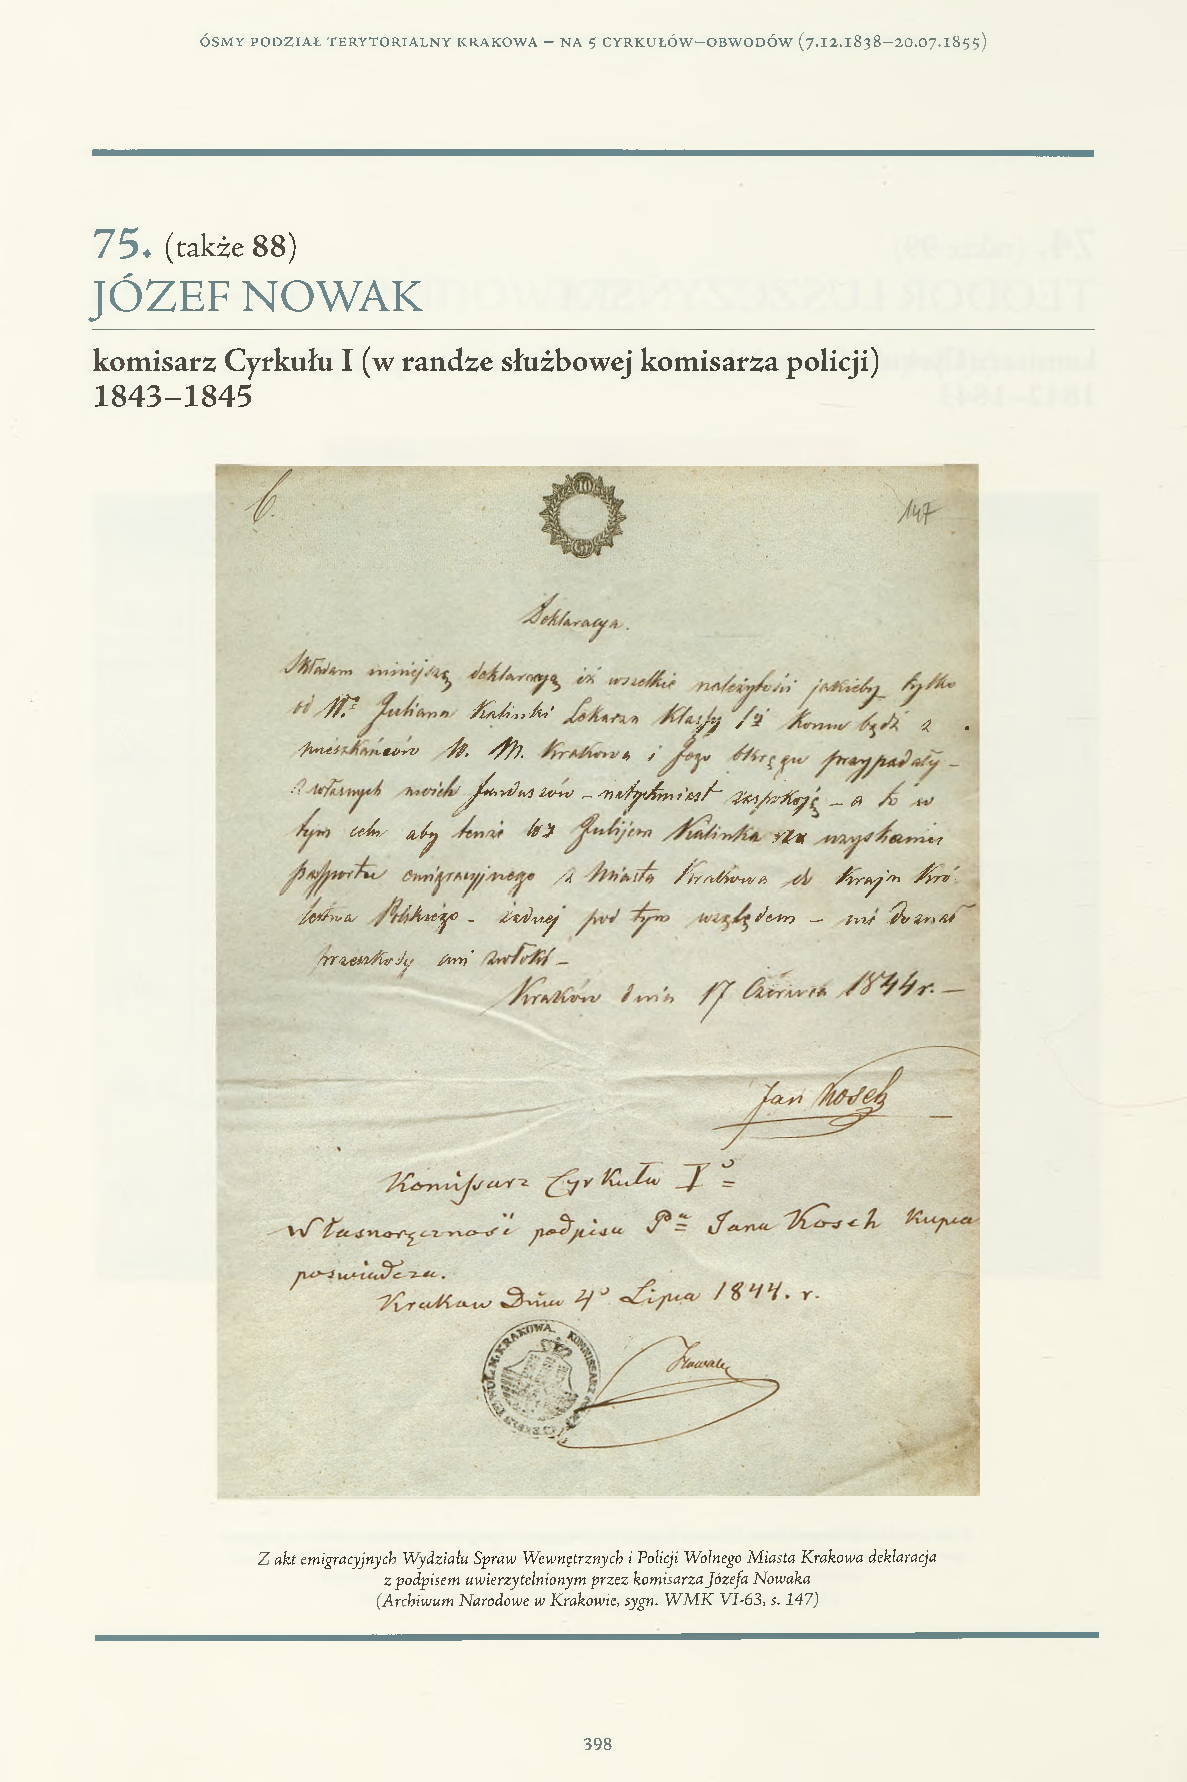 ÓSMY PODZIAŁ TERYTORIALNY KRAKOWA – NA 5 CYRKUŁÓW–OBWODÓW (7.12.1838–20.07.1855)
75. (także 88)
JÓZEF NOWAK
komisarz Cyrkułu I (w randze służbowej komisarza policji)
1843–1845
6.
10
147
Deklaracya.
Składam niniejszą deklaracyą iż wszelkie należytości jakieby tylko
od Juliana Kalinki Lekarza Klassy komu bądź z
mieszkańców W. M. Krakowa i Jego Okręgu przypadały –
z własnych moich funduszów – natychmiast zaspokoję – a to w
tym celu aby tenże Julijan Kalinka na uzyskanie
passportu emigracyjnego z Miasta Krakowa do Kraju Kró-
lestwa Polskiego – żadnej pod tym względem – nie doznał
przeszkody ani zwłoki –
Kraków dnia 17 Czerwca 1844 r. –
Jan Kosch
Komissarz Cyrkułu I°
Własnoręczność podpisu Pa Jana Kosch Kupca
poświadcza.
Krakow Dnia 4° Lipca 1844. r.
Nowak
Z akt emigracyjnych Wydziału Spraw Wewnętrznych i Policji Wolnego Miasta Krakowa deklaracja
z podpisem uwierzytelnionym przez komisarza Józefa Nowaka
(Archiwum Narodowe w Krakowie, sygn. WMK VI-63, s. 147)
398